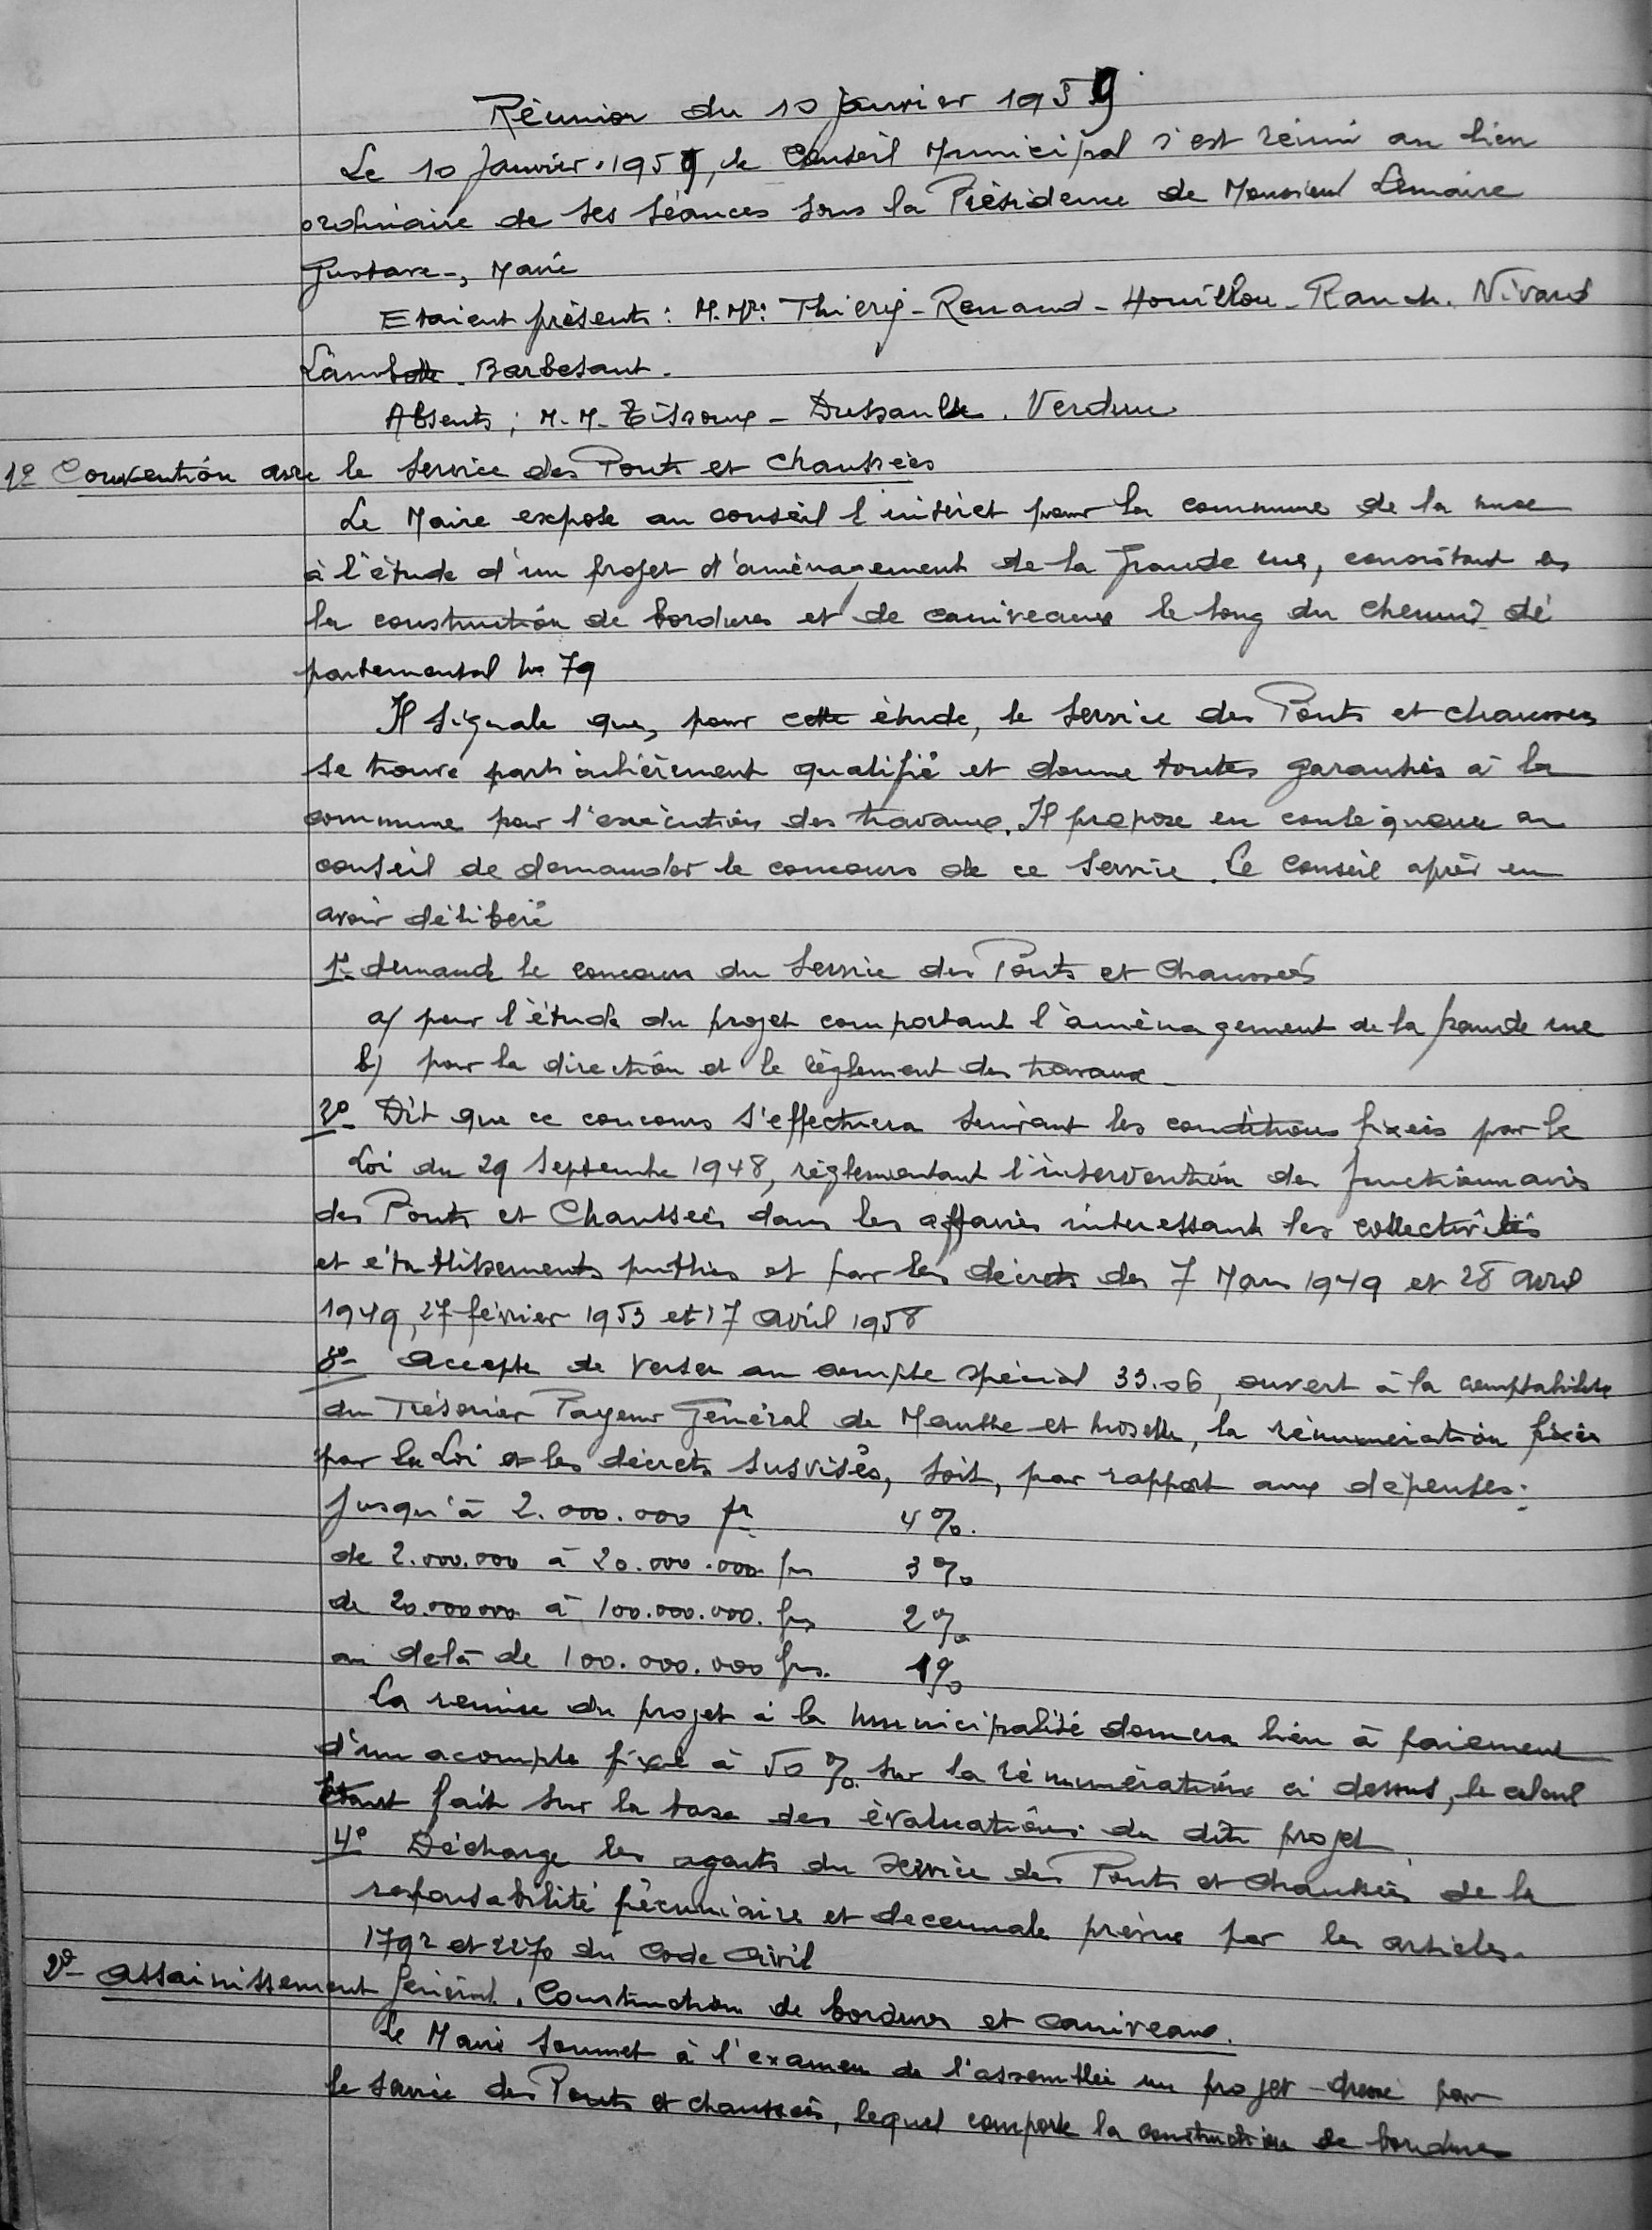 Réunion du 10 janvier 1959
Le 10 Janvier 1959, le Conseil Municipal s'est réuni au lieu
ordinaire de ses séances sous la Présidence de Monsieur Lemaire
Gustave -, Maire
Etaient présents : M.Mrs Thiery - Renaud - Houillon - Rauch. Nivard
Lambotte . Barbesant.
Absents ; M.M. Tissoux - Dussaulx . Verdun
1º Convention avec le Service des Ponts et Chaussées
Le Maire expose au conseil l'intérêt pour la commune de la mise
à l'étude d'un projet d'aménagement de la Grande rue, consistant en
la construction de bordures et de caniveaux le long du Chemin dé
partemental No 79
Il signale que, pour cette étude, le Service des Ponts et chaussées
se trouve particulièrement qualifié et donne toutes garanties à la
commune pour l'exécution des travaux. Il propose en conséquence au
conseil de demander le concours de ce Service. Le Conseil après en
avoir délibéré
1º- demande le concours du Service des Ponts et Chaussées
a/ pour l'étude du projet comportant l'aménagement de la grande rue
b) pour la direction et le règlement des travaux -
2º- Dit que ce concours s'effectuera suivant les conditions fixées par la
Loi du 29 Septembre 1948, réglementant l'intervention des fonctionnaires
des Ponts et Chaussées dans les affaires intéressant les collectivités
et établissements publics et par les décrets des 7 Mars 1949 et 28 avril
1949, 27 février 1953 et 17 avril 1958
3º- accepte de verser au compte spécial 33.06, ouvert à la comptabilité
du Trésorier Payeur Général de Meurthe et Moselle, la rémunération fixée
par la Loi et les décrets susvisés, soit, par rapport aux dépenses :
Jusqu'à 2.000.000 fr 4 %.
de 2.000.000 à 20.000.000 frs 3 %
de 20.000000 à 100.000.000. frs 2 %
au delà de 100.000.000 frs. 1 %
La remise du projet à la Municipalité donnera lieu à paiement
d'un acompte fixé à 50 % sur la rémunération ci dessus, le calcul
étant fait sur la base des évaluations du dit projet.
4º Décharge les agents du Service des Ponts et Chaussées de la
responsabilité pécuniaire et decennale prévue par les articles
1792 et 2270 du Code Civil
2º- Assainissement Général. Construction de bordures et caniveaux.
Le Maire soumet à l'examen de l'assemblée un projet dressé par
le service des Ponts et chaussées, lequel comporte la construction de bordures